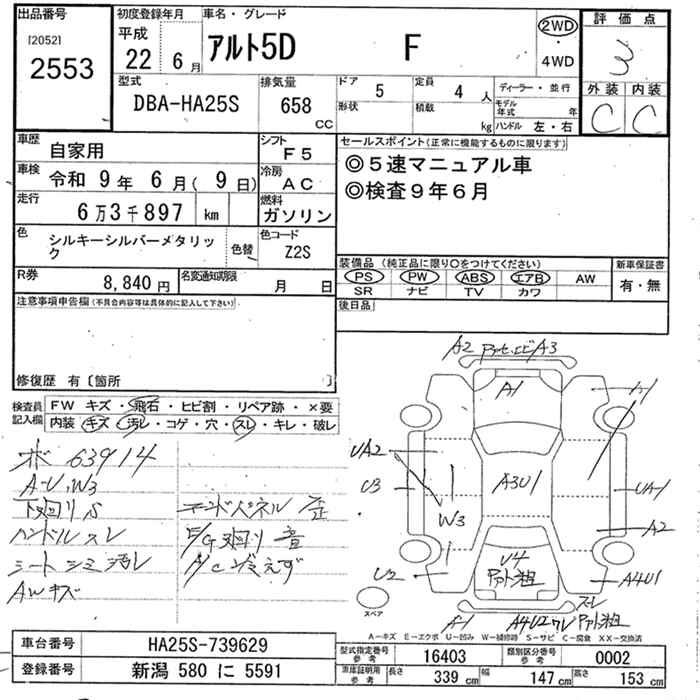 出品番号
[2052]
2553
初度登録年月
平成
22 6月
車名・グレード
アルト5D F
2WD
・
4WD
評価点
3
外装 内装
C C
型式
DBA-HA25S
排気量
658
CC
ドア
5
形状
定員
4 人
積載
kg
ディーラー・並行
モデル年式 年
ハンドル 左・右
車歴
自家用
シフト
F5
車検
令和 9年 6月( 9日)
冷房
AC
走行
6万3千897 km
燃料
ガソリン
色
シルキーシルバーメタリック
色替
色コード
Z2S
R券
8,840円
名変通知期限
月 日
セールスポイント(正常に機能するものに限ります)
◎5速マニュアル車
◎検査9年6月
装備品(純正品に限り○をつけてください)
PS PW ABS エアB AW
SR ナビ TV カワ
新車保証書
有・無
後日品
注意事項申告欄(不具合内容等は具体的に記入して下さい)
修復歴 有〔箇所 〕
検査員
記入欄
FW キズ・飛石・ヒビ割・リペア跡・×要
内装 キズ・汚レ・コゲ・穴・スレ・キレ・破レ
ホ 63914
A-U、W3
下廻リS
ハンドルスレ
シートシミ汚レ
AWキズ
エンドパネル歪
E/G廻リ音
A/Cひえず
A2
A3
A1
A-1
UA2
U3
W3
A3U1
UA-1
A2
U2
U4
A4U1
スレ
A-1
A4U2
スペア
A-キズ E-エクボ U-凹み W-補修跡 S-サビ C-腐食 XX-交換済
車台番号
HA25S-739629
登録番号
新潟 580 に 5591
型式指定番号
参考
16403
類別区分番号
参考
0002
車庫証明用
参考
長さ 339 cm
幅 147 cm
高さ 153 cm